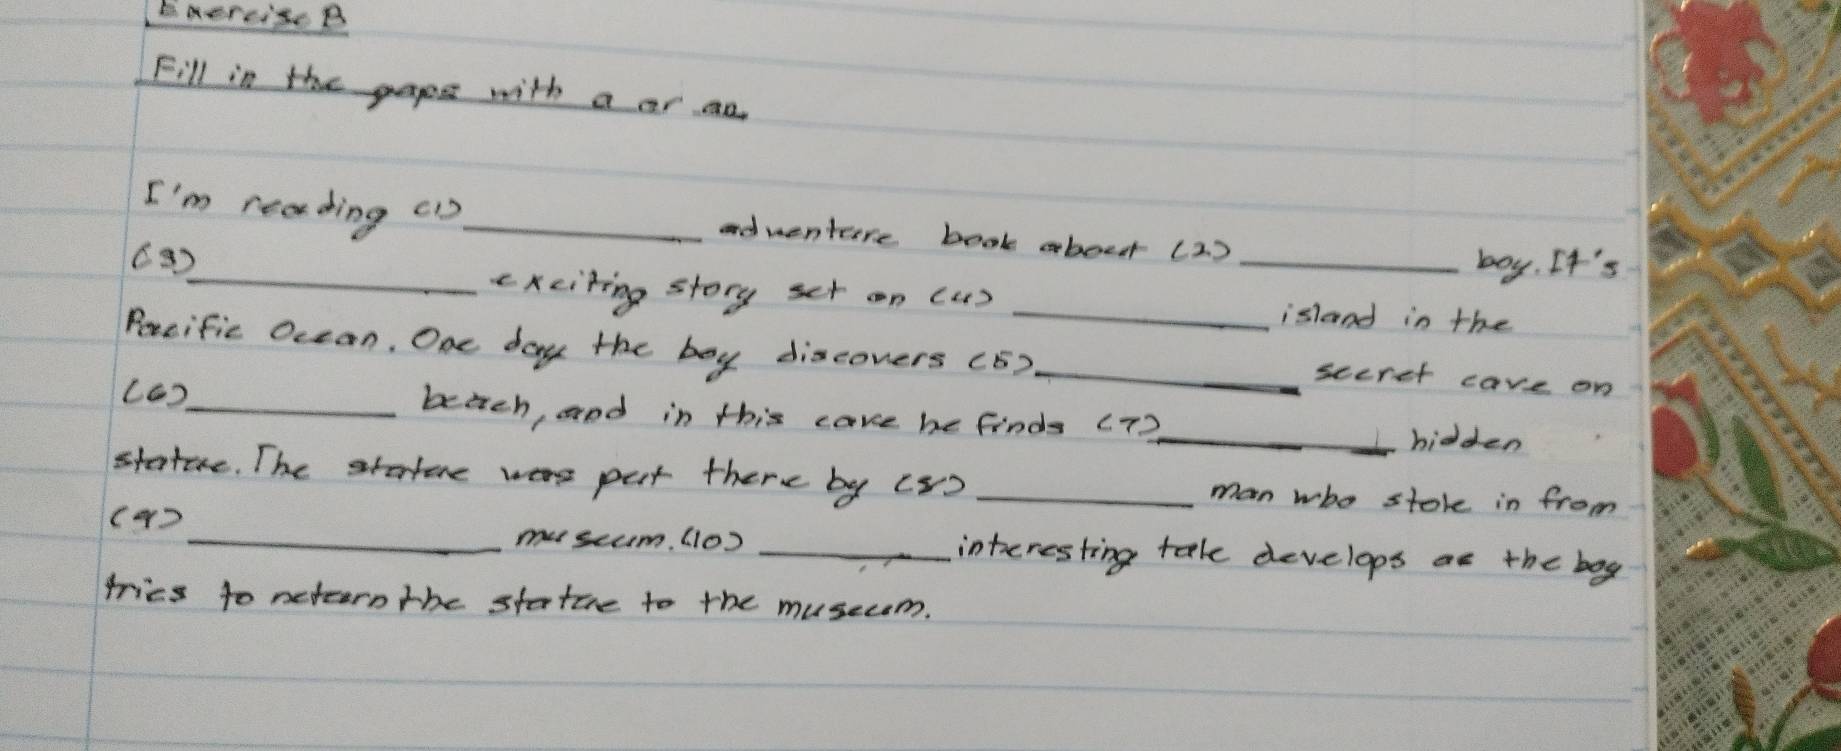 Exercise B
Fill in the gaps with a or an.
I'm reading (1)__________ adventure book about (2)__________ boy. It's
(3)__________ exciting story set on (4)__________ island in the
Pacific Ocean. One day the boy discovers (5)__________ secret cave on
(6)__________ beach, and in this cave he finds (7)__________ hidden
statue. The statue was put there by (8)__________ man who stole in from
(9)__________ museum. (10)__________ interesting tale develops as the boy
tries to return the statue to the museum.